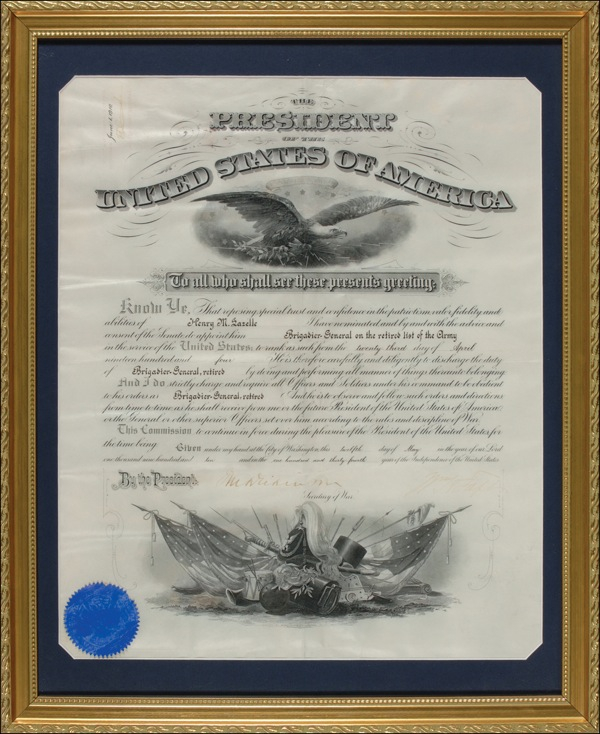 THE
PRESIDENT
OF THE
UNITED STATES OF AMERICA
To all who shall see these presents greeting:
Know Ye, That reposing special trust and confidence in the patriotism, valor, fidelity and
abilities of Henry M. Lazelle I have nominated and by and with the advice and
consent of the Senate do appoint him Brigadier-General on the retired list of the Army
in the service of the United States: to rank as such from the twenty third day of April
nineteen hundred and four He is therefore carefully and diligently to discharge the duty
of Brigadier-General, retired by doing and performing all manner of things thereunto belonging.
And I do strictly charge and require all Officers and Soldiers under his command to be obedient
to his orders as Brigadier-General, retired And he is to observe and follow such orders and directions
from time to time as he shall receive from me or the future President of the United States of America
or the General or other superior Officers set over him according to the rules and discipline of War.
This Commission to continue in force during the pleasure of the President of the United States for
the time being.
Given under my hand at the City of Washington, this twelfth day of May in the year of our Lord
one thousand nine hundred and ten and in the one hundred and thirty fourth year of the Independence of the United States.
By the President:
Secretary of War